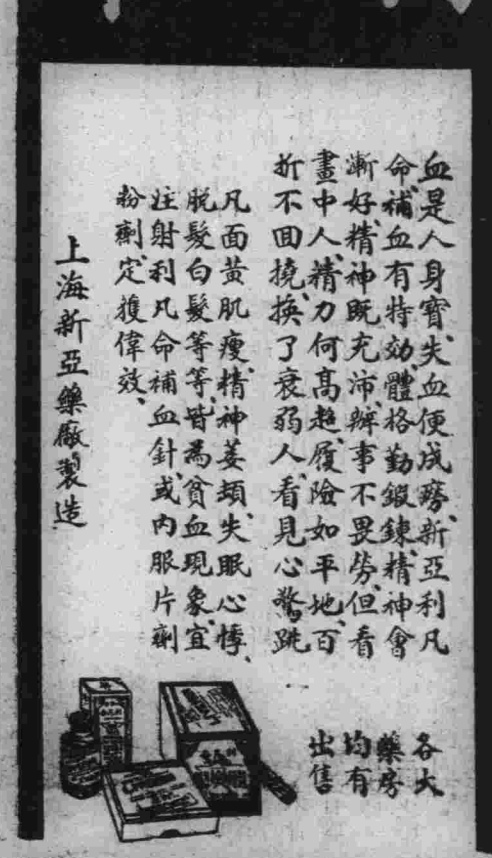 血是人身寶、失血便成癆、新亞利凡
命、補血有特効、體格勤鍛鍊、精神會
漸好、精神既充沛、辦事不畏勞、但看
畫中人、精力何高超、履險如平地、百
折不回撓、換了衰弱人、看見心驚跳
凡面黃肌瘦、精神萎頹、失眠心悸、
脫髮白髮等等、皆為貧血現象、宜
注射利凡命補血針、或內服片劑
粉劑、定獲偉效、
上海新亞藥廠製造
各大
藥房
均有
出售